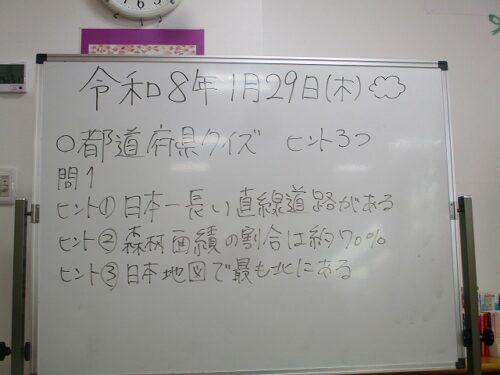 令和8年1月29日(木)
○都道府県クイズ ヒント3つ
問1
ヒント① 日本一長い直線道路がある
ヒント② 森林面積の割合は約70%
ヒント③ 日本地図で最も北にある